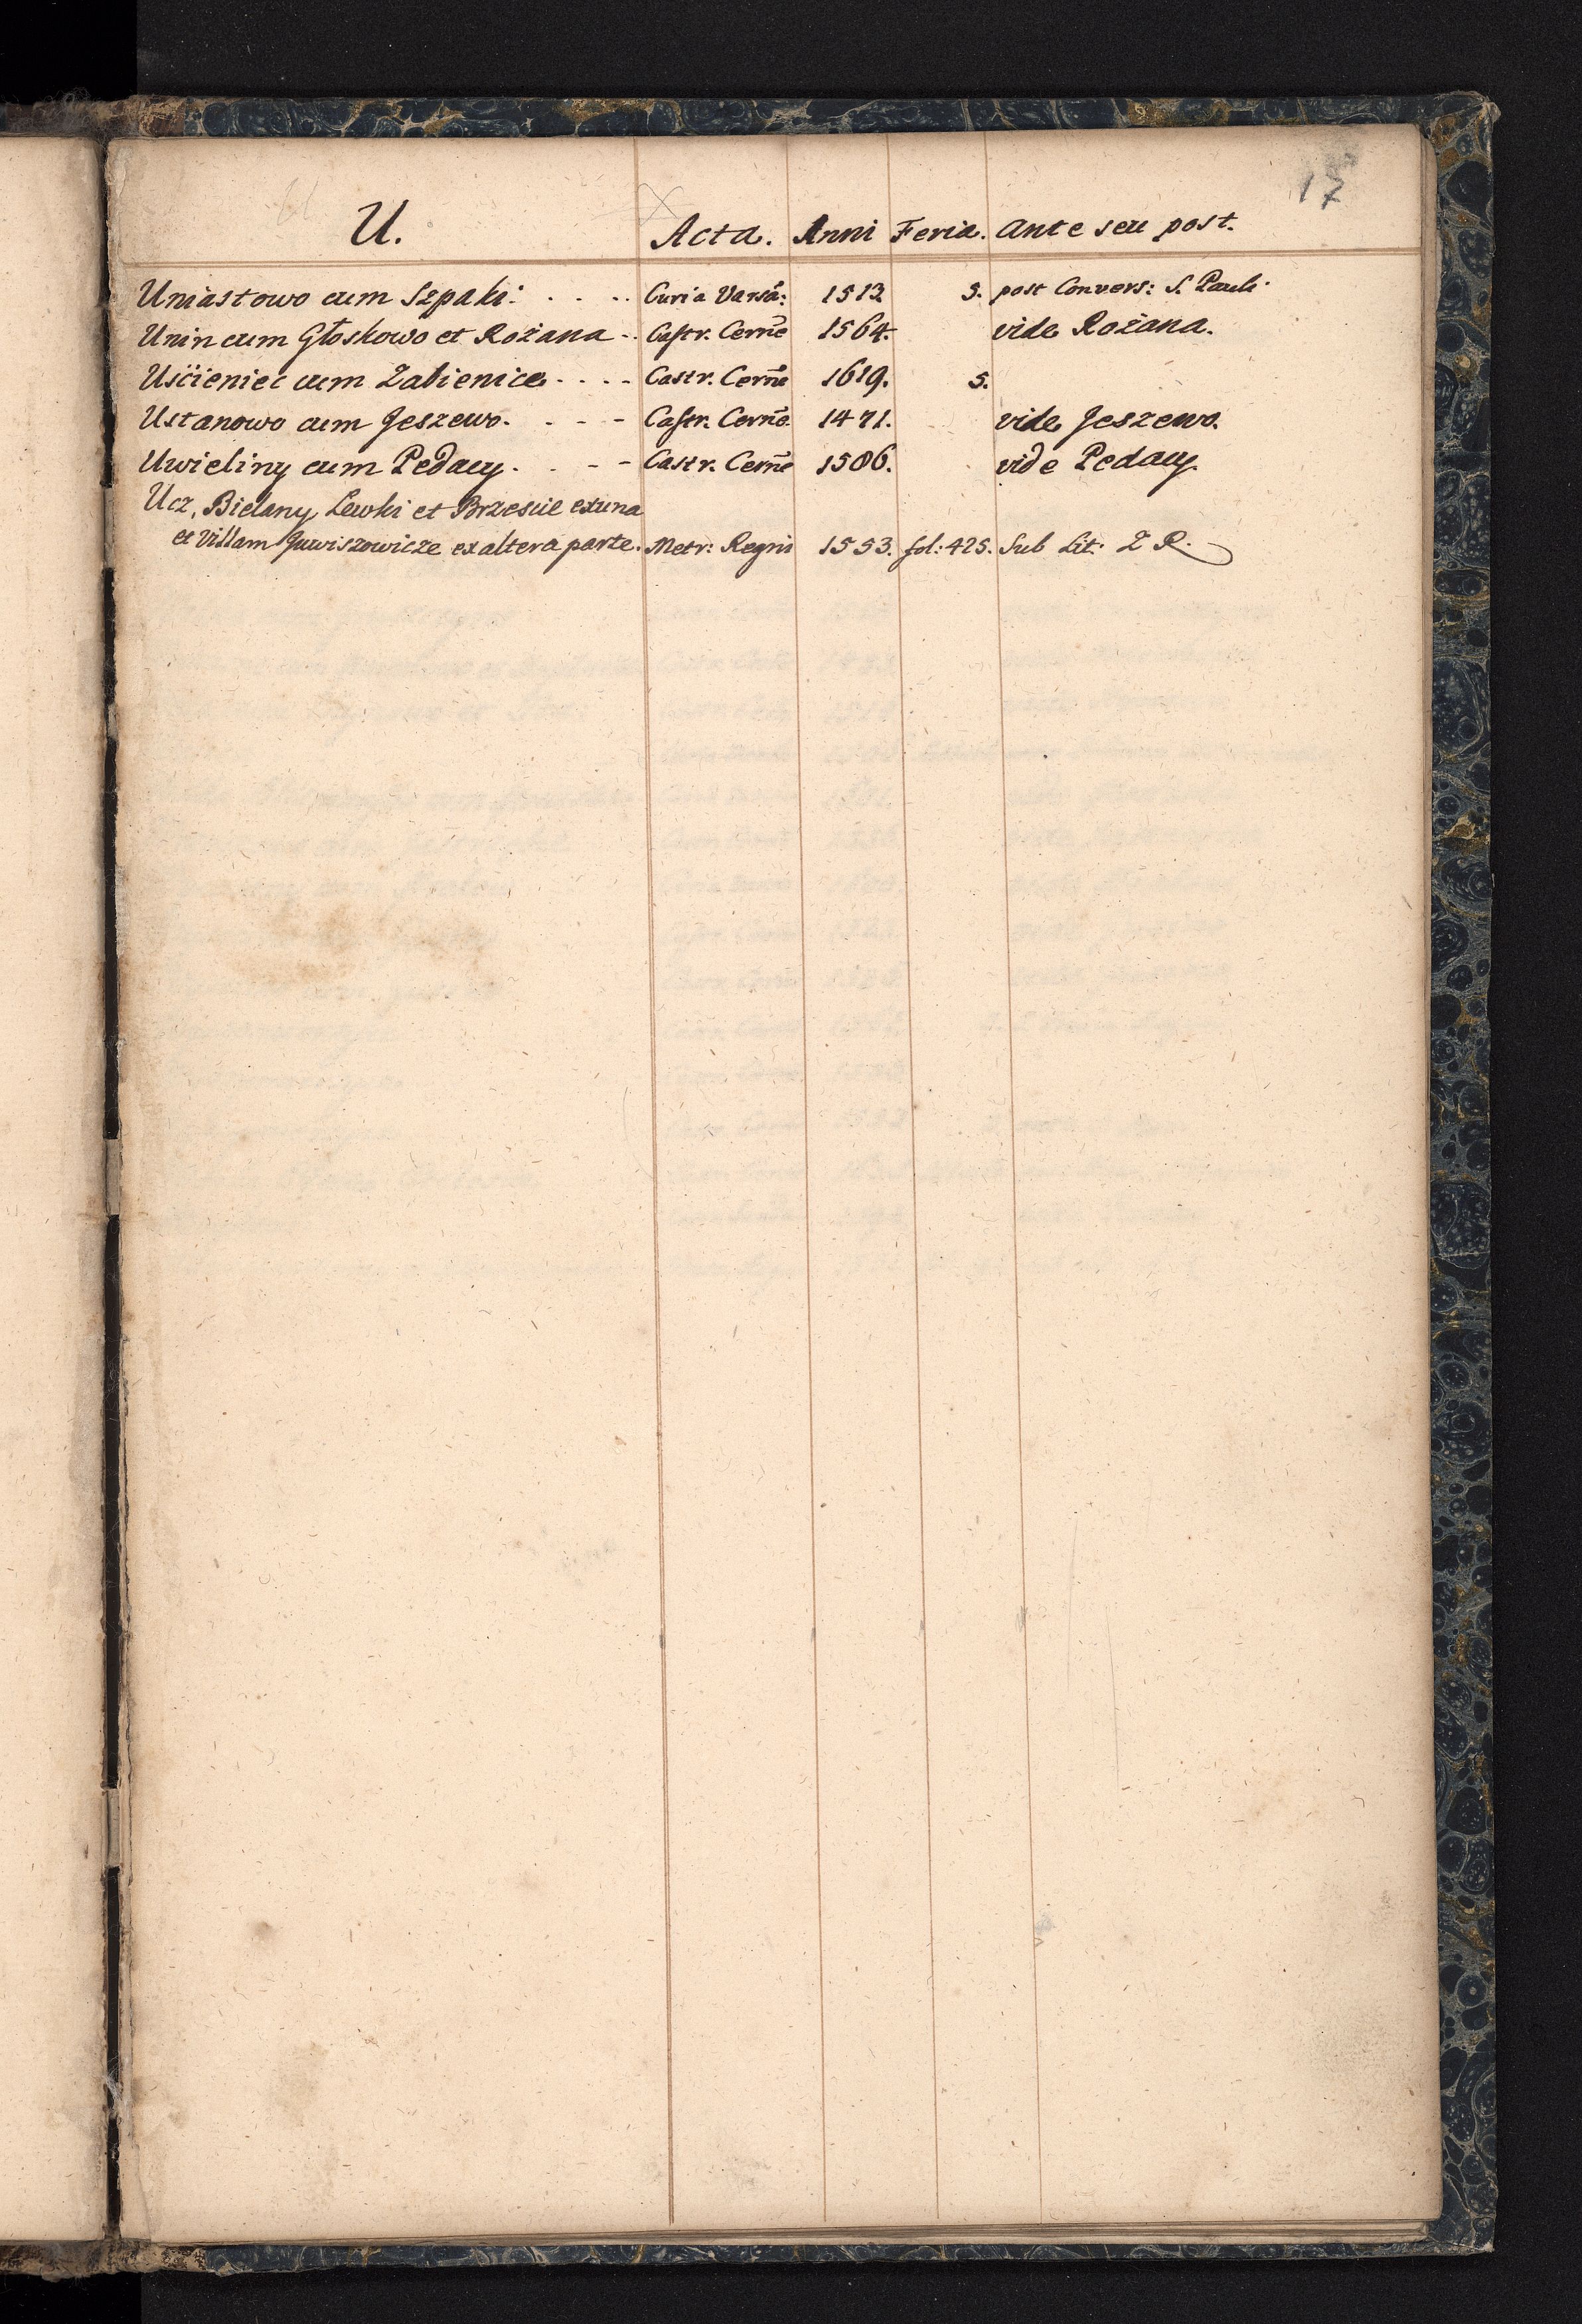 17
U. Acta. Anni Feria. Ante seu post.
Uniastowo cum Szpaki: . . . . Curia Varsa: 1513 5. post Convers: S. Pauli.
Unin cum Głoskowo et Rożana - . Castr. Cerñe 1564. vide Rożana.
Usćieniec cum Zabienice . . . . Castr. Cerñe 1619. 5.
Ustanowo cum Jeszewo. . - - Castr. Cerñe. 1471. vide Jeszewo.
Uwieliny cum Pedacy. . - - Castr. Cerñe 1506. vide Pedacy.
Ucz, Bielany, Lewki et Brzescie ex una
et Villam Juwiszowicze ex altera parte. Metr: Regni 1553. fol: 425. Sub Lit: Z R.